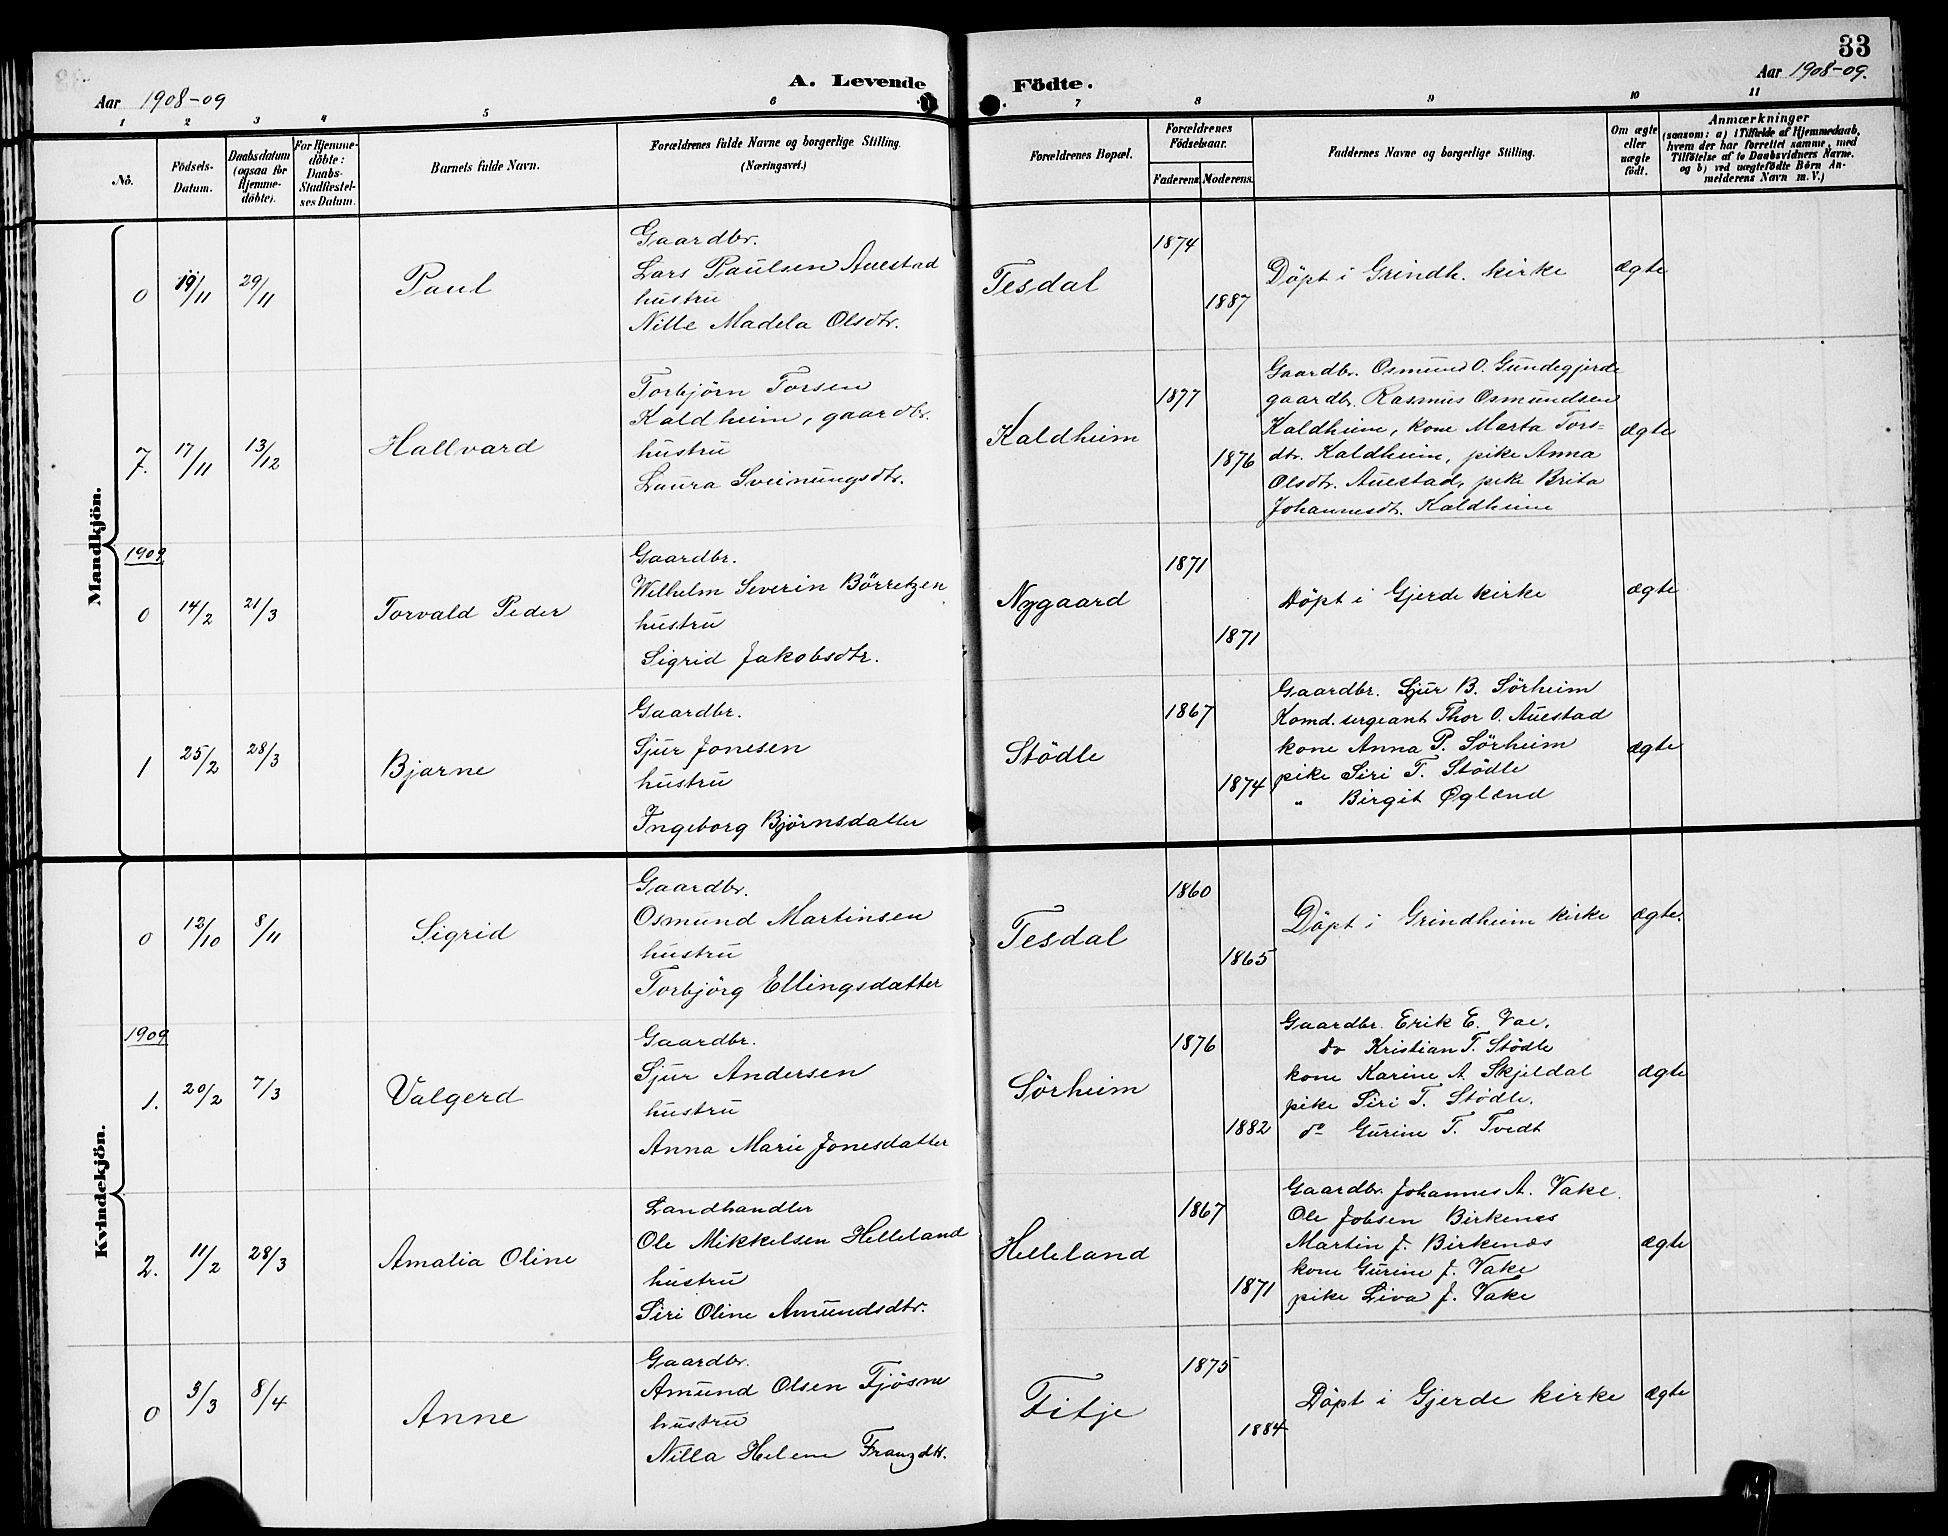 33
A. Levende Födte.
Aar 1908-09
Aar 1908-09.
1 2 3 4 5 6 7 8 9 10 11
No.
Födsels-Datum.
Daabsdatum (ogsaa for Hjemme-döbte).
For Hjemme-döbte: Daabs-Stadfæstel-ses Datum.
Barnets fulde Navn.
Forældrenes fulde Navne og borgerlige Stilling.
(Næringsvei.)
Forældrenes Bopæl.
Forældrenes Födselsaar.
Faderens. Moderens.
Faddernes Navne og borgerlige Stilling.
Om ægte eller uægte födt.
Anmærkninger
(saasom: a) i Tilfælde af Hjemmedaab, hvem der har forrettet samme, med Tilföielse af to Daabsvidners Navne, og b) ved uægtefödte Börn An-melderens Navn m. V.)
Mandkjön.
0 19/11 29/11 Paul
Gaardbr.
Lars Paulsen Auestad
hustru
Nille Madela Olsdtr.
Tesdal 1874 1887 Döpt i Grindh. kirke ægte
7. 17/11 13/12 Hallvard
Torbjörn Torsen
Kaldheim, gaardbr.
hustru
Laura Sveinungsdtr.
Kaldheim 1877 1876
Gaardbr. Osmund O. Gundegjerde
gaardbr. Rasmus Osmundsen
Kaldheim, kone Marta Tors=
dtr. Kaldheim, pike Anna
Olsdtr. Auestad, pike Brita
Johannesdt. Kaldheim
ægte
1909
0 14/2 21/3 Torvald Peder
Gaardbr.
Wilhelm Severin Börretzen
hustru
Sigrid Jakobsdtr.
Nygaard 1871 1871 Döpt i Gjerde kirke ægte
1 25/2 28/3 Bjarne
Gaardbr.
Sjur Jonesen
hustru
Ingeborg Björnsdatter
Stödle 1867 1874
Gaardbr. Sjur B. Sörheim
Komd. sergeant Thor O. Auestad
kone Anna P. Sörheim
pike Siri T. Stödle
" Birgit Øglænd
ægte
Kvindekjön.
0 12/10 8/11 Sigrid
Gaardbr.
Osmund Martinsen
hustru
Torbjörg Ellingsdatter
Tesdal 1860 1865 Döpt i Grindheim kirke ægte.
1909
1. 20/2 7/3 Valgerd
Gaardbr.
Sjur Andersen
hustru
Anna Marie Jonesdatter
Sörheim 1876 1882
Gaardbr. Erik E. Vae,
do Kristian T. Stödle
kone Karine A. Skjeldal
pike Siri T. Stödle.
do Gurine T. Tvedt
ægte
2. 11/2 28/3 Amalia Oline
Landhandler
Ole Mikkelsen Helleland
hustru
Siri Oline Amundsdtr.
Helleland 1867 1871
Gaardbr. Johannes A. Vake.
Ole Jobsen Birkenes
Martin J. Birkenæs
kone Gurine J. Vake
pike Liva J. Vake
ægte
0 3/3 8/4 Anne
Gaardbr.
Amund Olsen Fjösne
hustru
Nilla Helene Franzdtt.
Fitje 1875 1884 Döpt i Gjerde kirke ægte